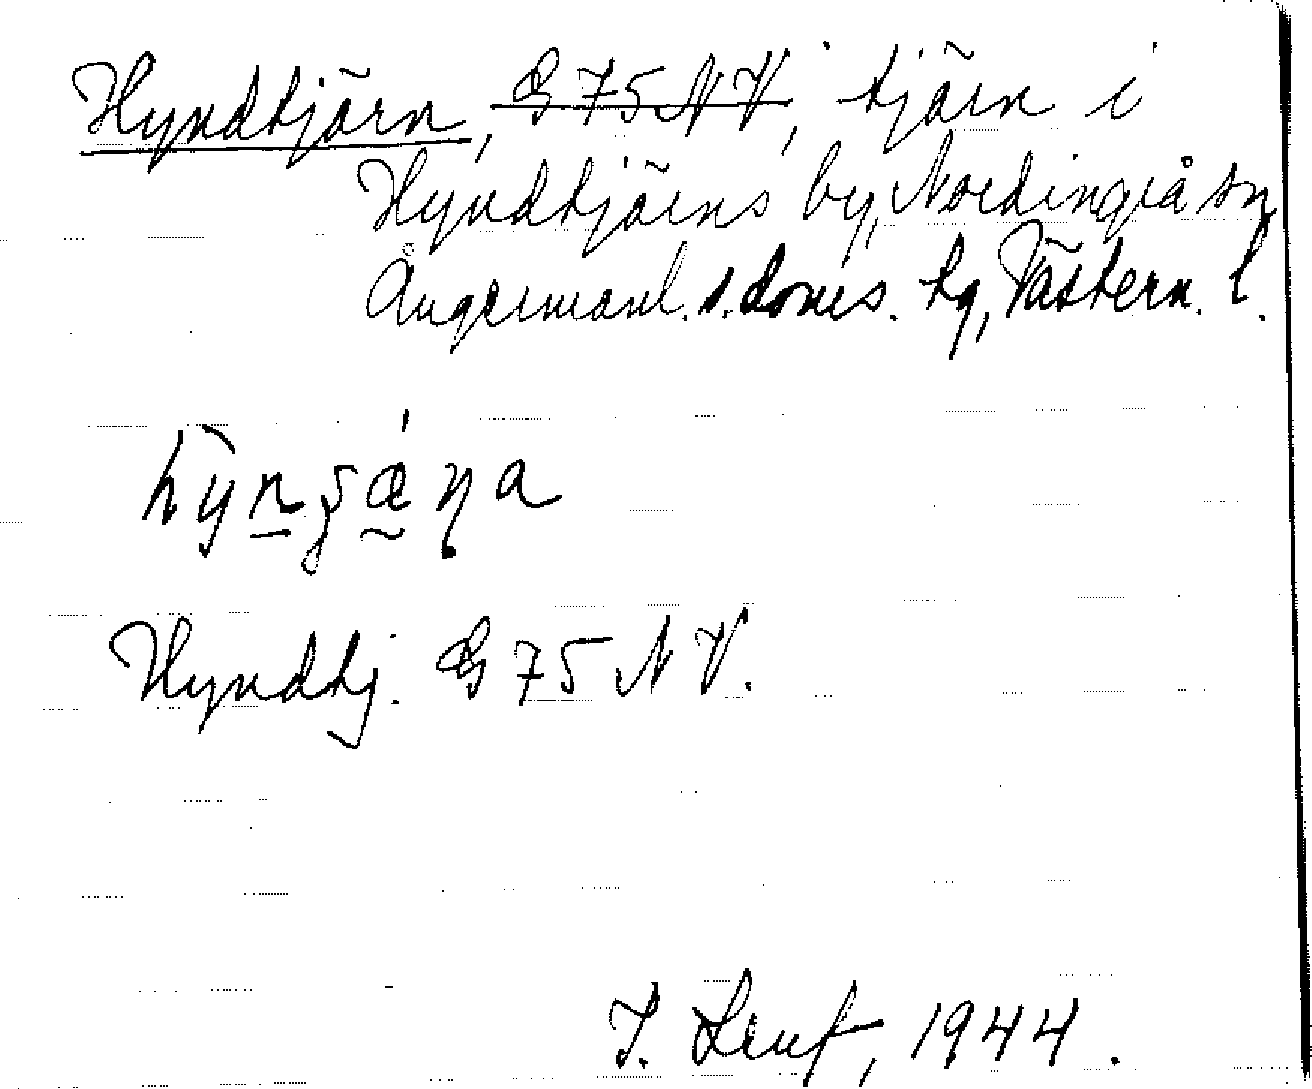 Hyndtjärn, G 75 N V, tjärn i
Hyndtjärns by, Nordingrå sn,
Ångermanl. s. doms. tg, Västern. l.
Hyndtj. G 75 N V.
1944.